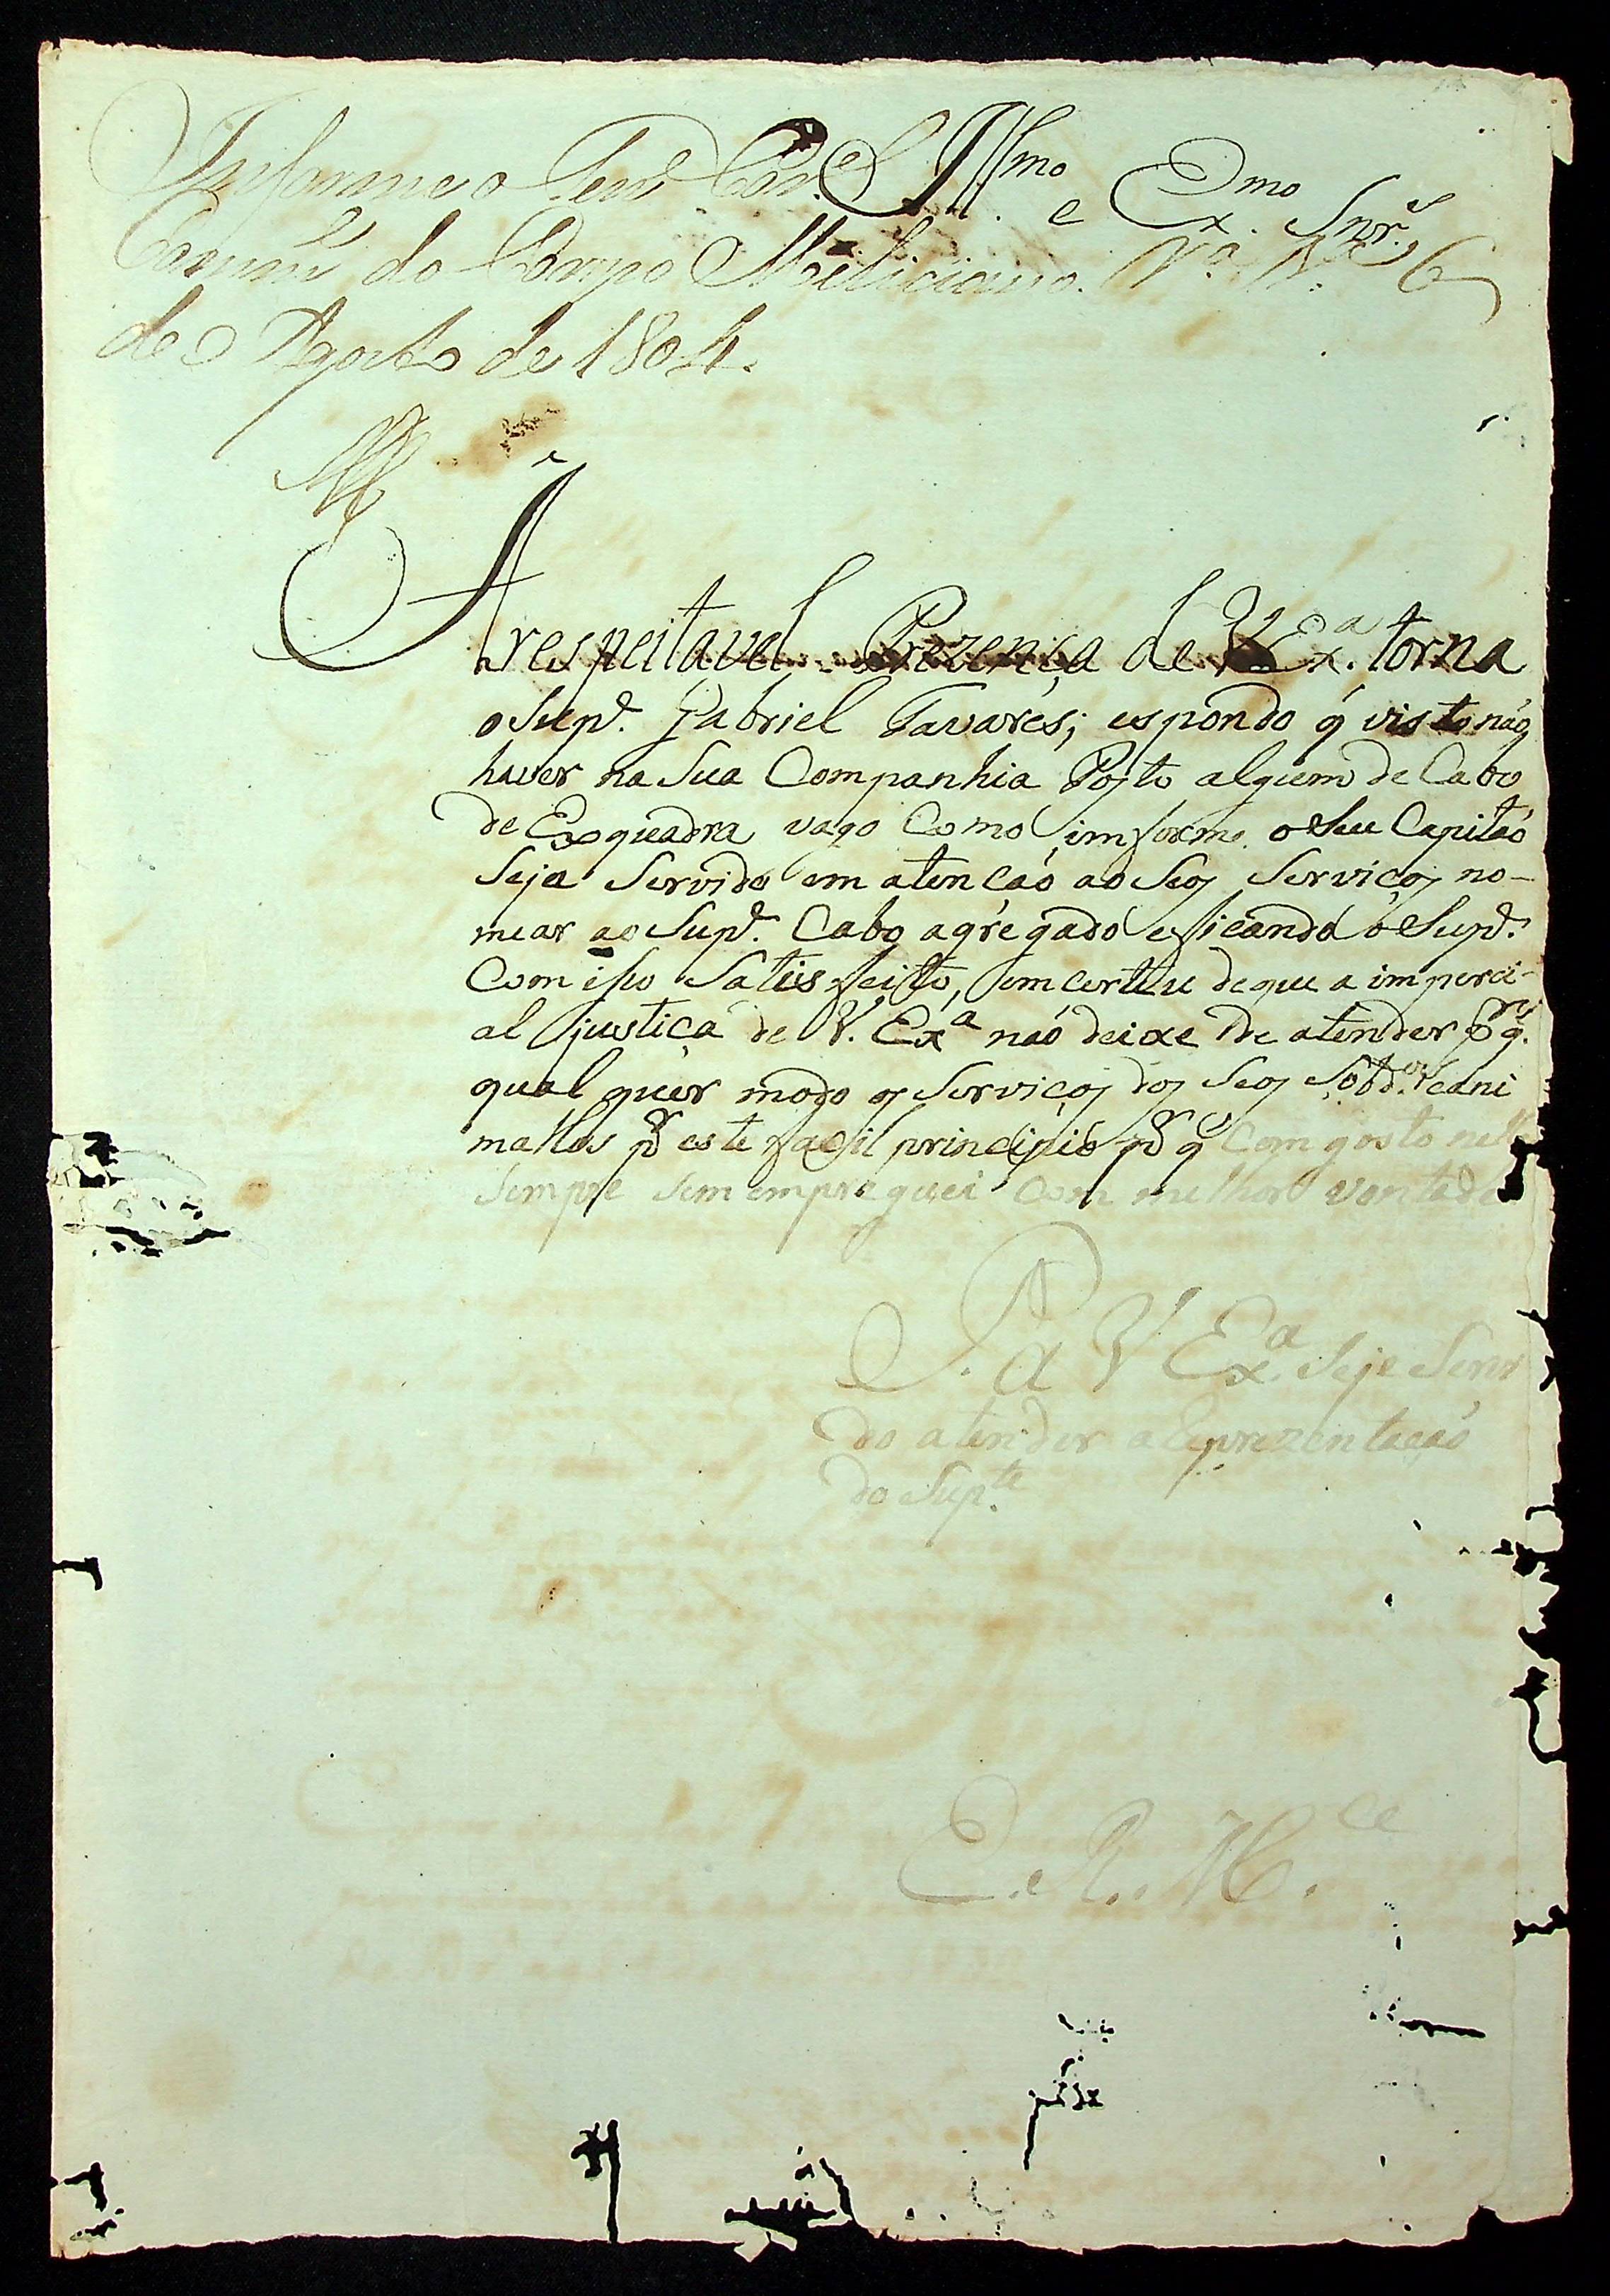 Informe o Ten.e Cor.el
Ill.mo e Ex.mo Snr.
Comm.e do Corpo Miliciano. V.a B.a 6
de Agosto de 1804.
A respeitavel Prezença de V Ex.a torna
o Sup.e Gabriel Tavares; espondo q̃ visto naó
haver na Sua Companhia Posto algum de Cabo
de Exquadra vago Como imforma o Seu Capitaó
Seja Servido em atencaó ao Seos Serviços no-
mear ao Sup.e Cabo agregado e ficando o Sup.e
Com iso Satisfeito, em certeu de que a imparci-
al justiça de V. Ex.a naó deixe de atender p.r q.
qual quer modo os Serviços dos Seos Sobd.os e ani
mallos p.r este facil principio p.r q̃ Com gosto
Sempre Sem empreguei Com melhor vontade
P. a V Ex.a Seje Servi
do atender a Reprezentaçaó
do Sup.te
E. R. M.ce